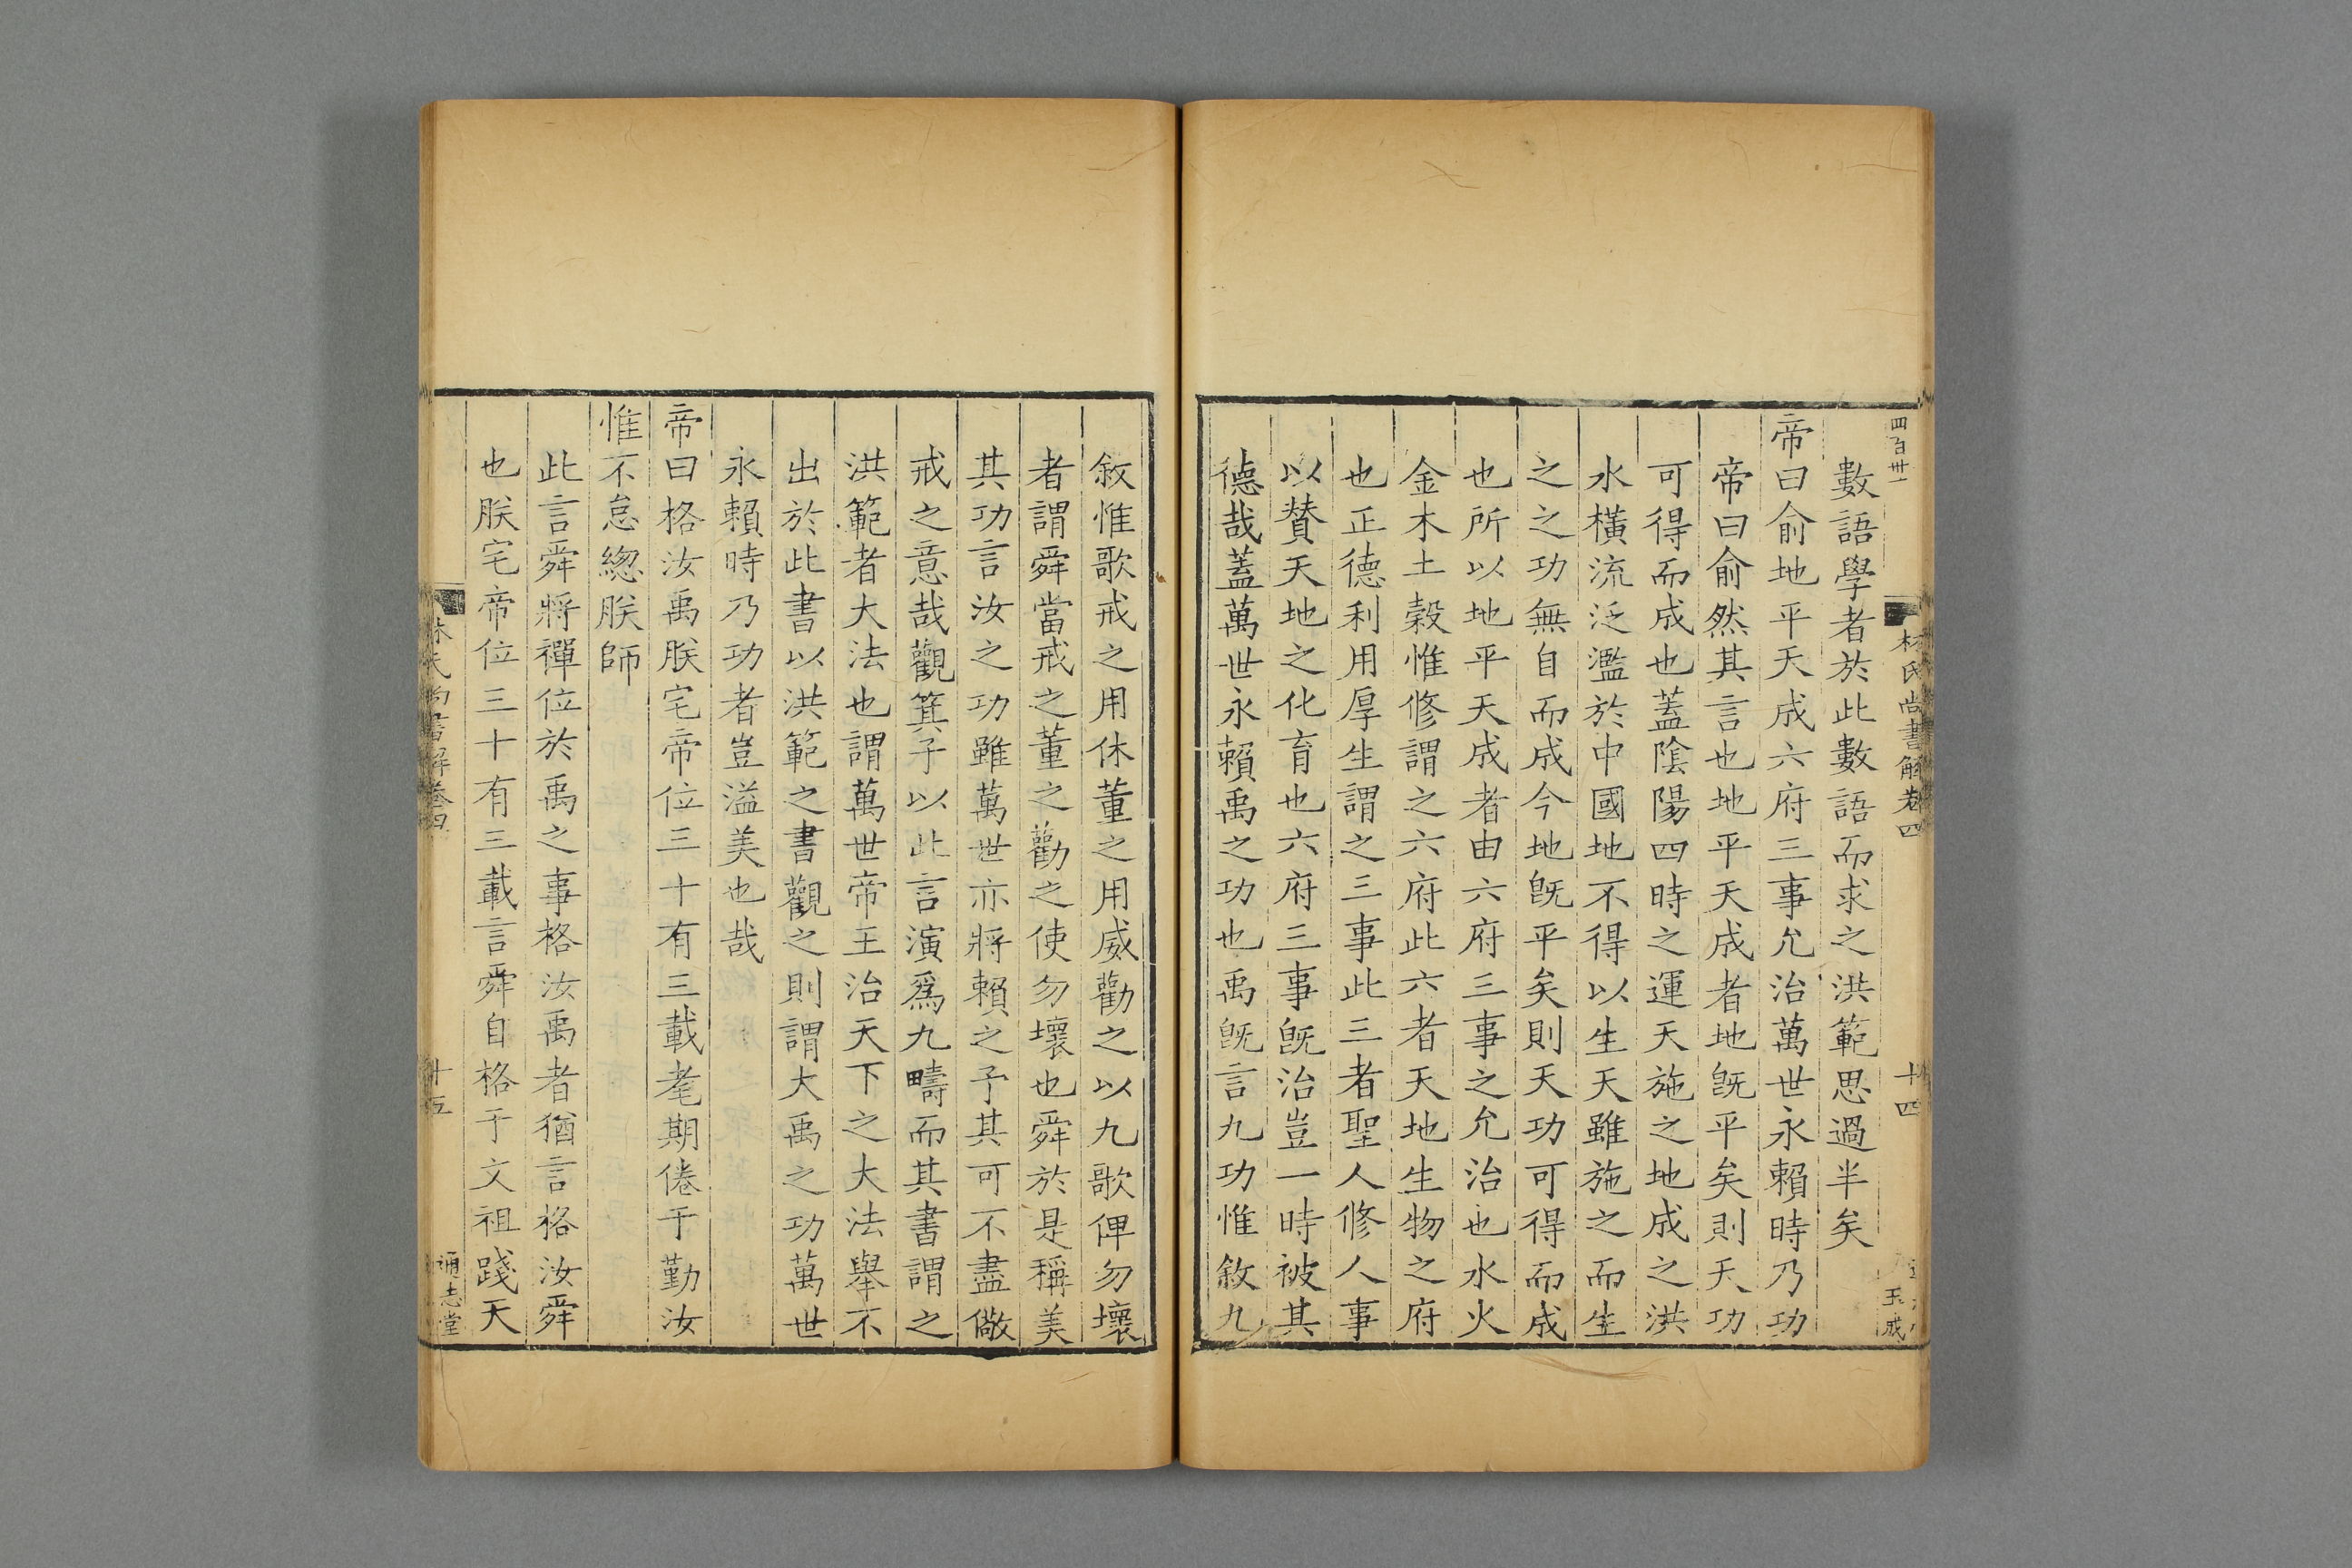 四百卅一
林氏尚書解卷四
十四
玉成
數語學者於此數語而求之洪範思過半矣
帝曰俞地平天成六府三事允治萬世永賴時乃功
帝曰俞然其言也地平天成者地旣平矣則天功
可得而成也蓋陰陽四時之運天施之地成之洪
水橫流泛濫於中國地不得以生天雖施之而生
之之功無自而成今地旣平矣則天功可得而成
也所以地平天成者由六府三事之允治也水火
金木土榖惟修謂之六府此六者天地生物之府
也正德利用厚生謂之三事此三者聖人修人事
以賛天地之化育也六府三事旣治豈一時被其
德哉蓋萬世永賴禹之功也禹旣言九功惟敘九
敘惟歌戒之用休董之用威勸之以九歌俾勿壞
者謂舜當戒之董之勸之使勿壞也舜於是稱美
其功言汝之功雖萬世亦將賴之予其可不盡儆
戒之意哉觀箕子以此言演爲九疇而其書謂之
洪範者大法也謂萬世帝王治天下之大法舉不
出於此書以洪範之書觀之則謂大禹之功萬世
永賴時乃功者豈溢美也哉
帝曰格汝禹朕宅帝位三十有三載耄期倦于勤汝
惟不怠緫朕師
此言舜將禪位於禹之事格汝禹者猶言格汝舜
也朕宅帝位三十有三載言舜自格于文祖踐天
林氏尚書解卷四
十五
通志堂